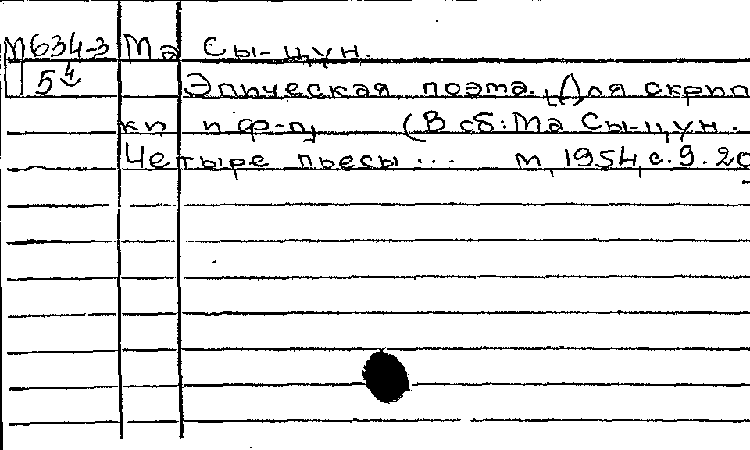 М634-3 Ма Сы-цун.
54 Эпическая поэма. [Для скрип
ки и ф-п] (В сб: Ма Сы-цун.
Четыре пьесы... М, 1954, с. 9. 20